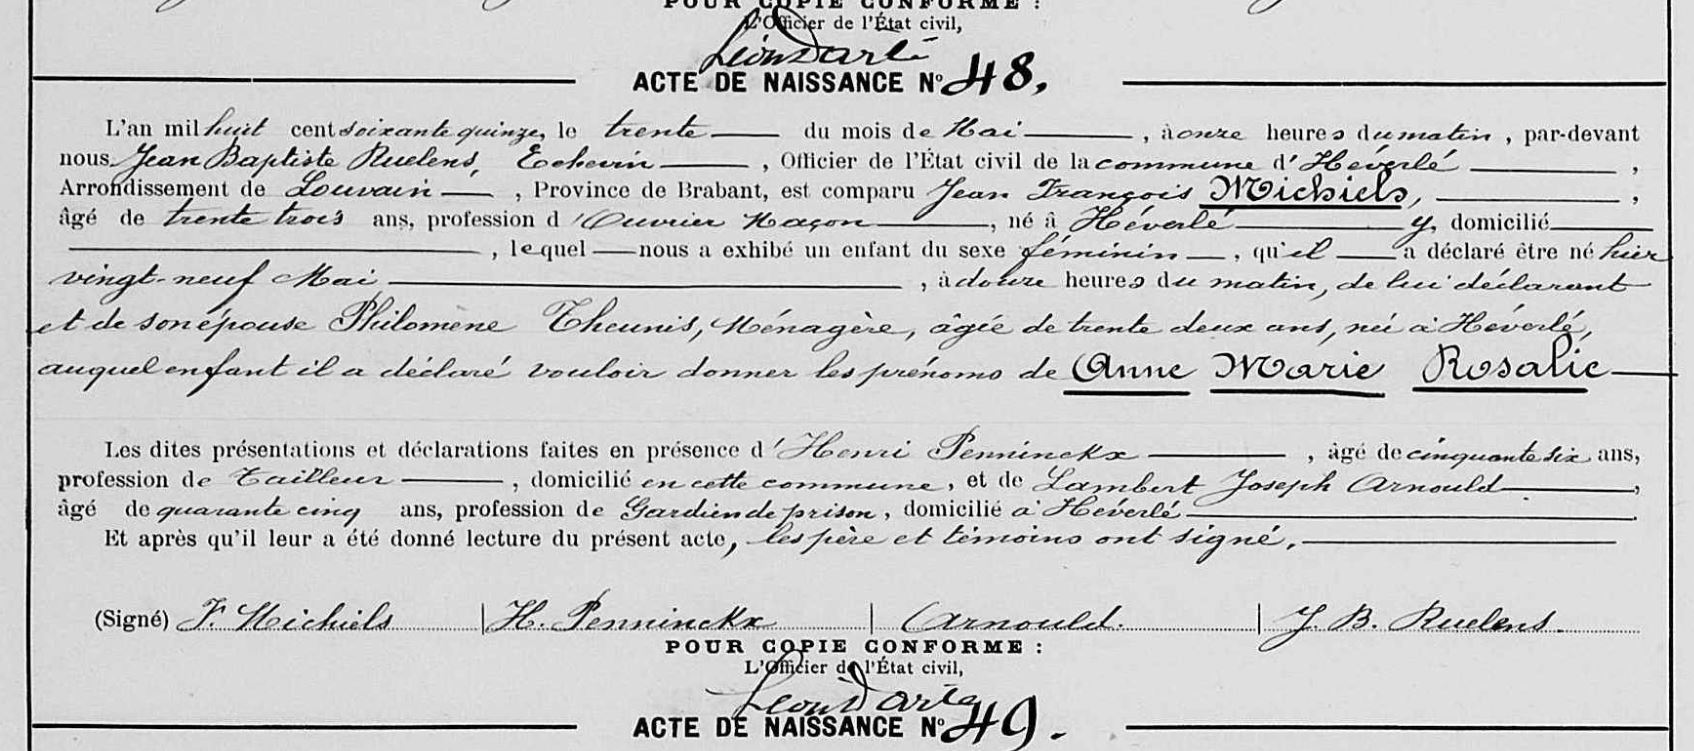 POUR COPIE CONFORME :
L'Officier de l'État civil,
ACTE DE NAISSANCE N° 48.
L'an mil huit cent soixante quinze, le trente du mois de Mai, à onze heures du matin, par-devant
nous Jean Baptiste Ruelens, Echevin, Officier de l'État civil de la commune d'Héverlé,
Arrondissement de Louvain, Province de Brabant, est comparu Jean François Michiels,
âgé de trente trois ans, profession d'Ouvrier Maçon, né à Héverlé y, domicilié
, lequel nous a exhibé un enfant du sexe féminin, qu'il a déclaré être né hier
vingt-neuf Mai, à douze heures du matin, de lui déclarant
et de son épouse Philomène Theunis, Ménagère, âgée de trente deux ans, née à Héverlé,
auquel enfant il a déclaré vouloir donner les prénoms de Anne Marie Rosalie
Les dites présentations et déclarations faites en présence d'Henri Penninckx, âgé de cinquante six ans,
profession de Tailleur, domicilié en cette commune, et de Lambert Joseph Arnould,
âgé de quarante cinq ans, profession de Gardien de prison, domicilié à Héverlé.
Et après qu'il leur a été donné lecture du présent acte, les père et témoins ont signé.
(Signé) F. Michiels | H. Penninckx | Arnould. | J. B. Ruelens.
POUR COPIE CONFORME :
L'Officier de l'État civil,
ACTE DE NAISSANCE N° 49.